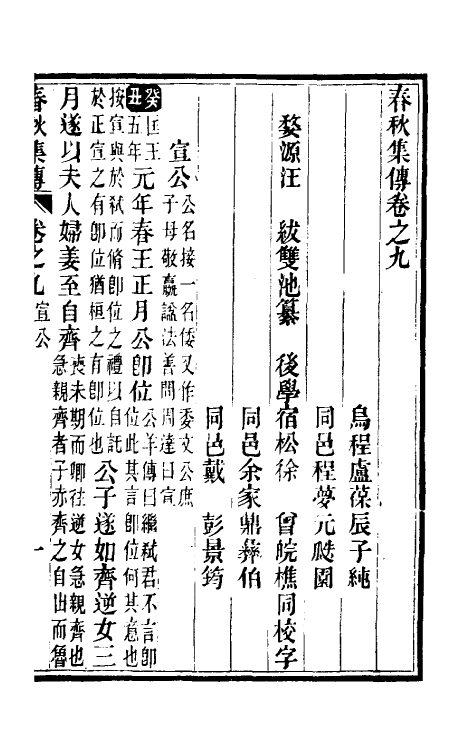 春秋集傳卷之九
烏程盧葆辰子純
同邑程夢元颷園
婺源汪　紱雙池纂　後學宿松徐　曾皖樵同校字
同邑余家鼎彝伯
同邑戴　彭景筠
宣公公名接一名倭又作委文公庶
子母敬嬴謚法善問周達曰宣
癸丑匡王五年元年春王正月公卽位公羊傳曰繼弑君不言卽
位此其言卽位何其意也
按宣與於弑而脩卽位之禮以自託
於正宣之有卽位猶桓之有卽位也公子遂如齊逆女三
月遂以夫人婦姜至自齊喪未期而卿往逆女急親齊也
急親齊者子赤齊之自出而魯
春秋集傳　卷之九宣公　一